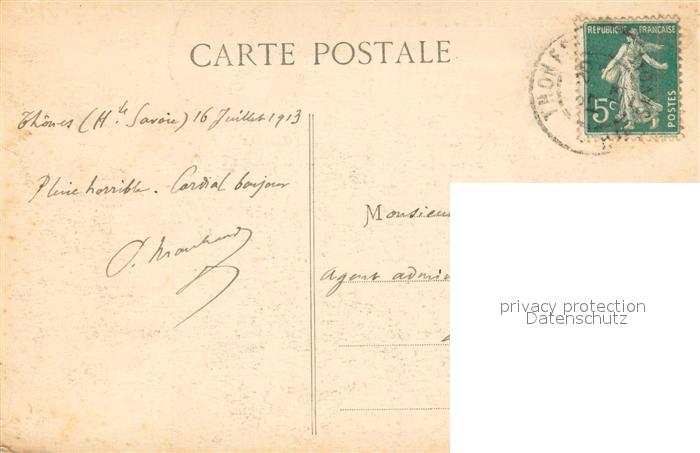 CARTE POSTALE
REPUBLIQUE FRANÇAISE
5c
POSTES
THONES
Thônes (Hte Savoie) 16 Juillet 1913
Pluie horrible. Cordial bonjour
Monsieur
Agent
privacy protection
Datenschutz